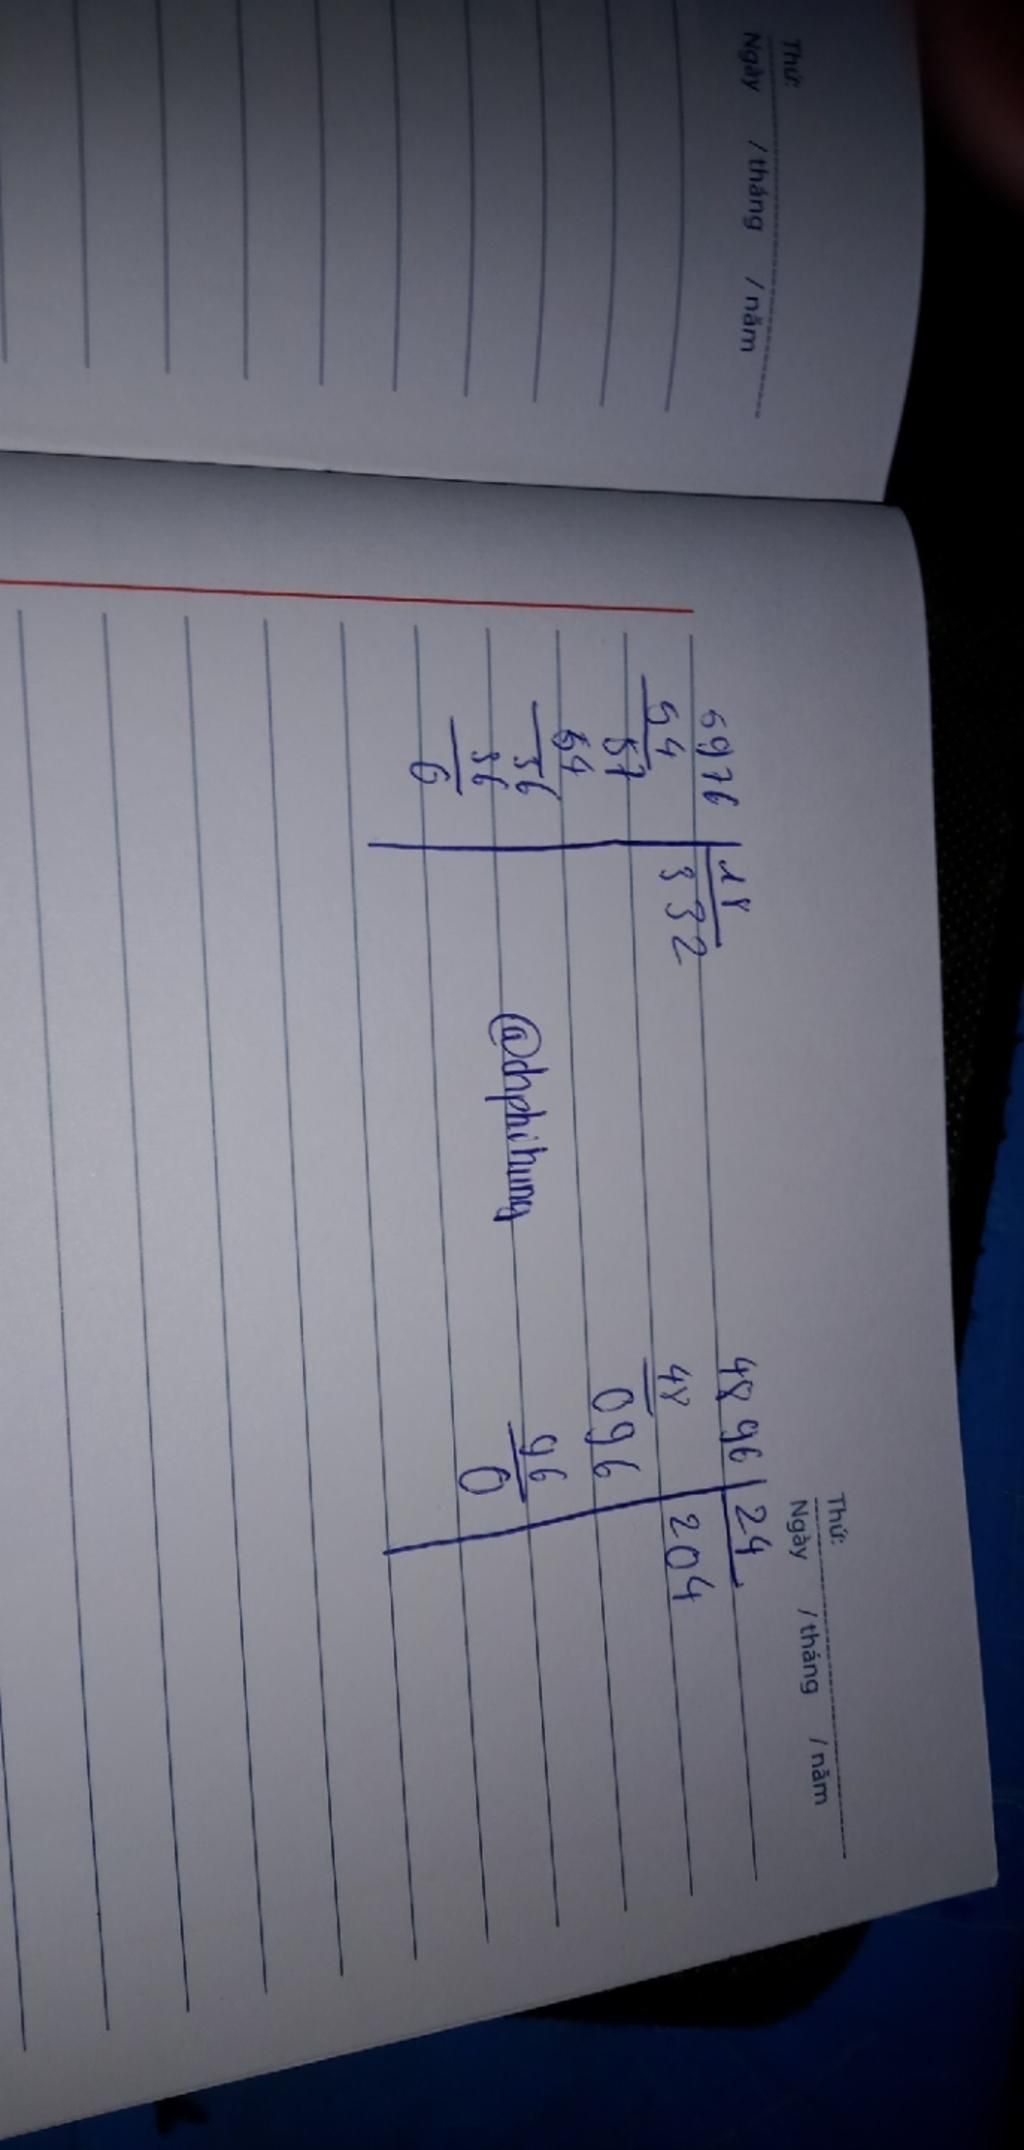 Thứ:
Ngày /tháng /năm
Thứ:
Ngày /tháng /năm
5976 18
54 332
57
54
36
36
0
@dhphihung
4896 24
48 204
096
96
0